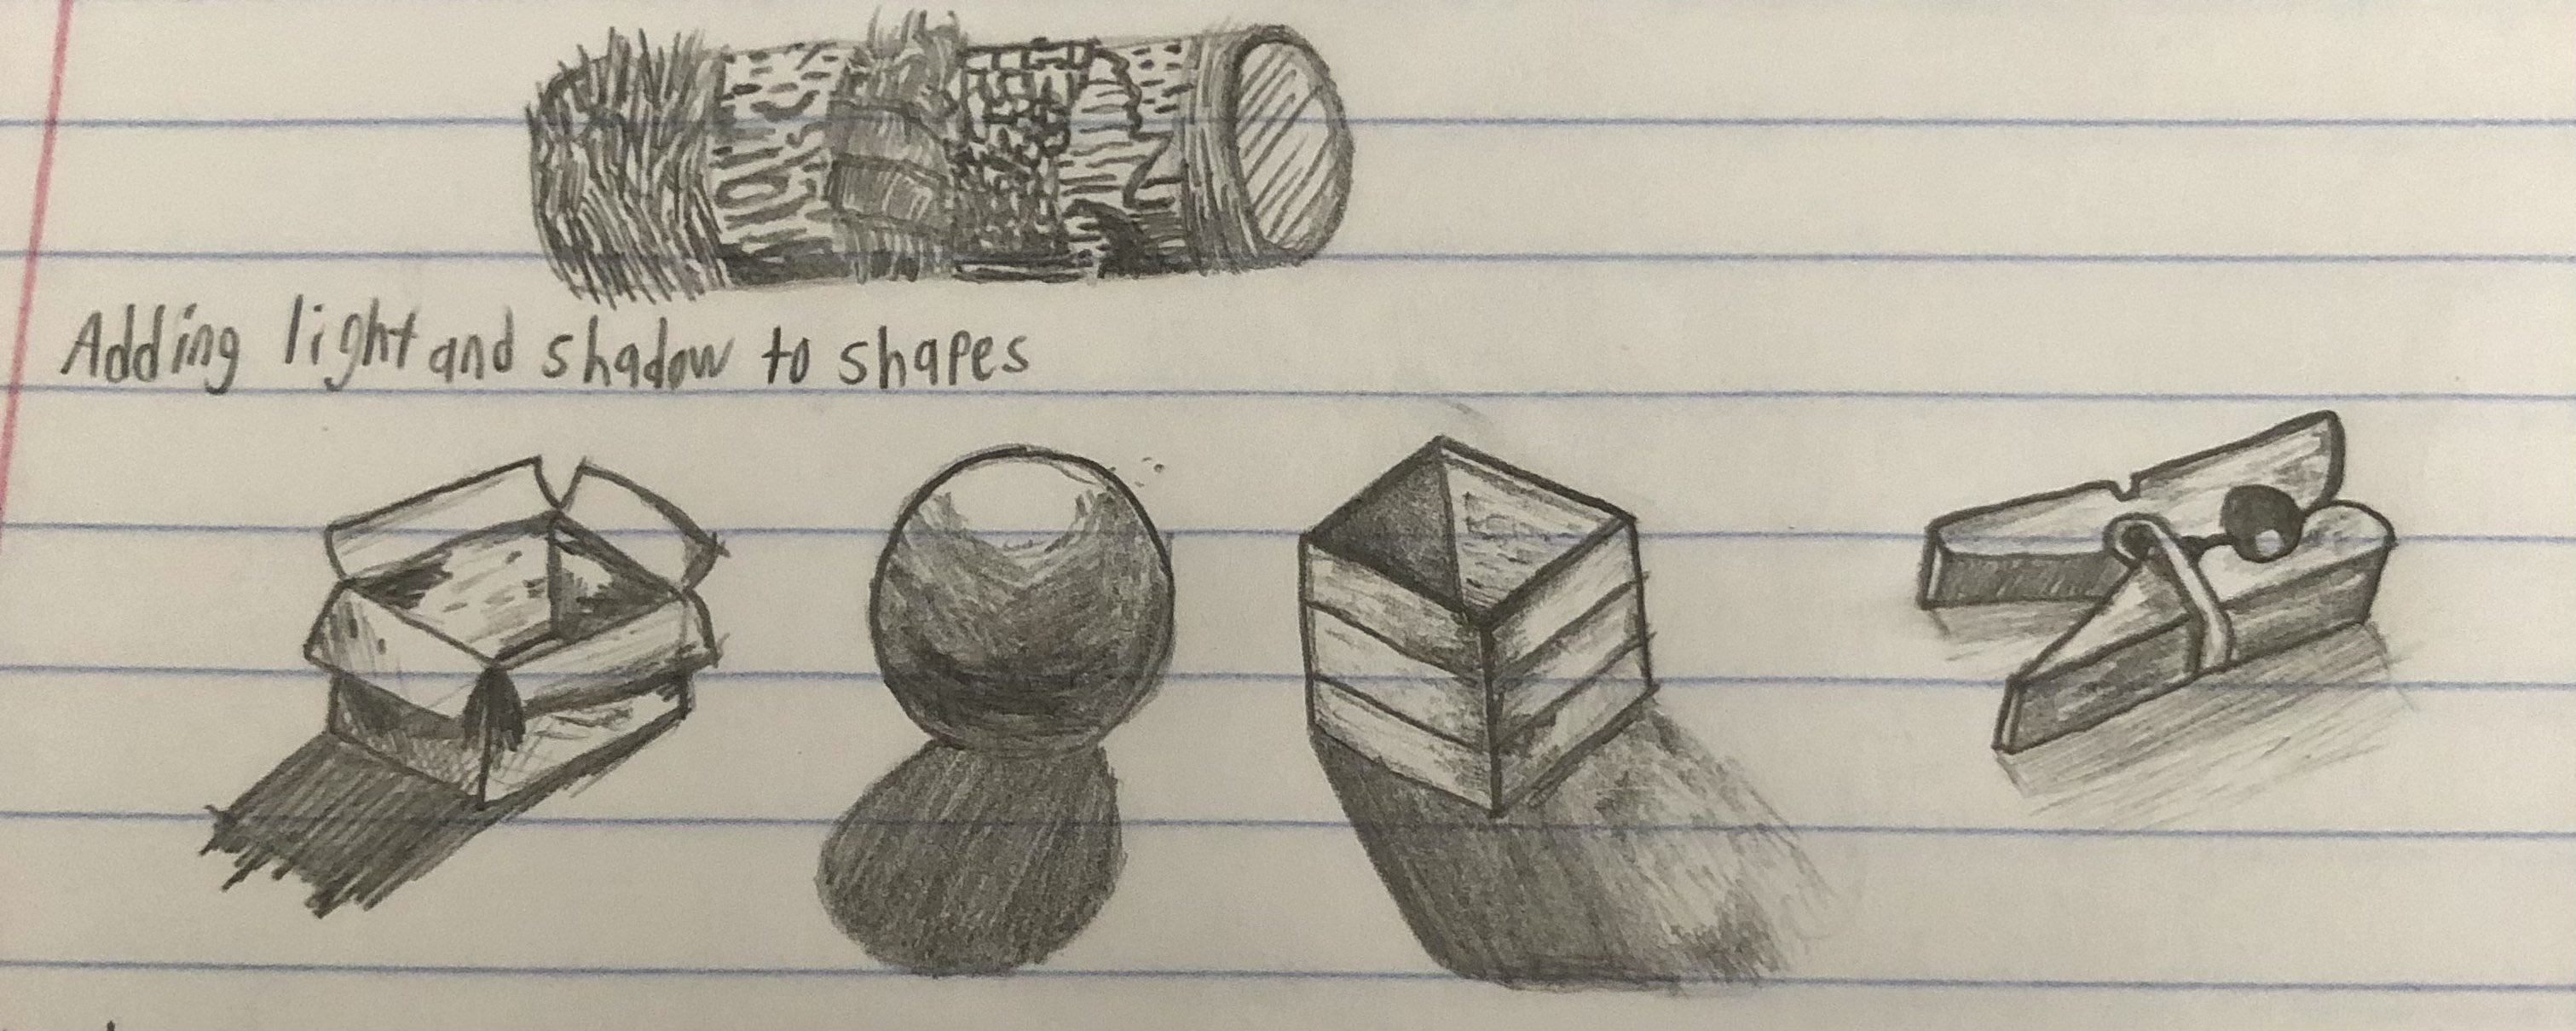 Adding light and shadow to shapes